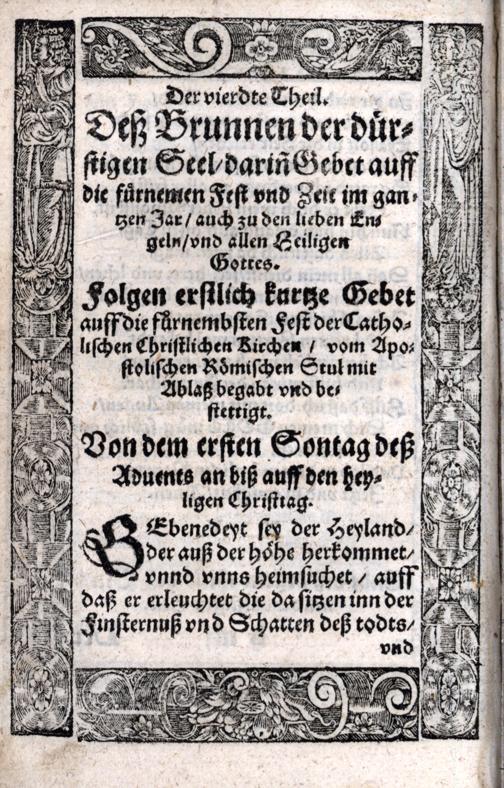 Der vierdte Theil.
Deß Brunnen der dür-
stigen Seel/ dariñ Gebet auff
die fürnemen Fest vnd Zeit im gan-
tzen Jar/ auch zu den lieben En
geln/ vnd allen Heiligen
Gottes.
Folgen erstlich kurtze Gebet
auff die fürnembsten Fest der Catho-
lischen Christlichen Kirchen / vom Apo-
stolischen Römischen Stul mit
Ablaß begabt vnd be-
stettigt.
Von dem ersten Sontag deß
Aduents an biß auff den hey-
ligen Christtag.
GEbenedeyt sey der Heyland/
der auß der höhe herkommet/
vnnd vnns heimsuchet / auff
daß er erleuchtet die da sitzen inn der
Finsternuß vnd Schatten deß todts/
vnd